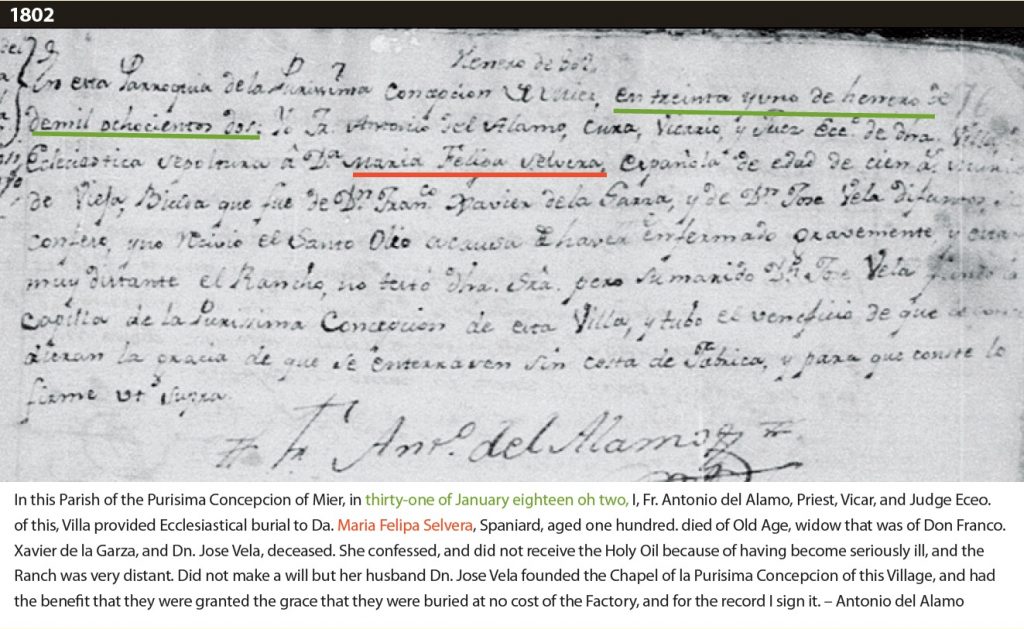 1802
Henero de 802
En esta Parroquia de la Purissima Concepcion de Mier, en treinta y uno de henero de
demil ochocientos dos: Yo Fr. Antonio del Alamo, Cura, Vicario, y Juez Ecc.º de dha. Villa,
Eclesiastica sepoltura â D.ª Maria Felipa Selvera, Española de edad de cien a.s
de Vieja, Biuda que fue de D.n Fran.co Xavier de la Garza, y de D.n Jose Vela difuntos,
confeso, y no recivio el Santo Oleo acausa de haver enfermado gravemente, y estar
muy distante el Rancho, no testó dha. Sra. pero su marido D.n Jose Vela fundó la
Capilla de la Purissima Concepcion de esta Villa, y tubo el veneficio de que
dieran la gracia de que se enterraven sin costa de Fabrica, y para que conste lo
firme ut supra.
Fr. Ant.º del Alamo
In this Parish of the Purisima Concepcion of Mier, in thirty-one of January eighteen oh two, I, Fr. Antonio del Alamo, Priest, Vicar, and Judge Eceo.
of this, Villa provided Ecclesiastical burial to Da. Maria Felipa Selvera, Spaniard, aged one hundred. died of Old Age, widow that was of Don Franco.
Xavier de la Garza, and Dn. Jose Vela, deceased. She confessed, and did not receive the Holy Oil because of having become seriously ill, and the
Ranch was very distant. Did not make a will but her husband Dn. Jose Vela founded the Chapel of la Purisima Concepcion of this Village, and had
the benefit that they were granted the grace that they were buried at no cost of the Factory, and for the record I sign it. – Antonio del Alamo